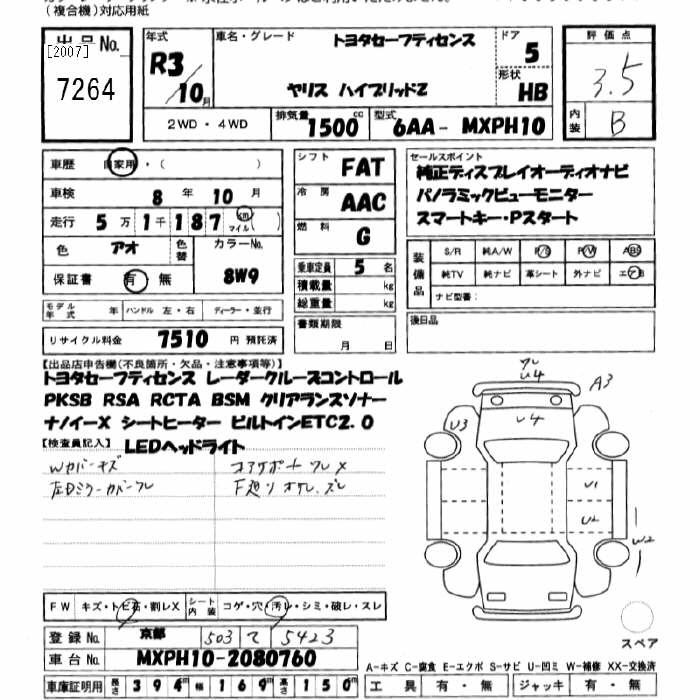 (複合機)対応用紙
出品No.
[2007]
7264
年式
R3/10月
車名・グレード
トヨタセーフティセンス
ヤリス ハイブリッドZ
ドア
5
形状
HB
評価点
3.5
内装
B
2WD・4WD
排気量
1500cc
型式
6AA-MXPH10
車歴 自家用・( )
車検 8年 10月
走行 5万1千187 km マイル( )
色 アオ
色替
カラーNo.
8W9
保証書 有 無
モデル年式 年 ハンドル 左・右 ディーラー・並行
リサイクル料金 7510 円 預託済
シフト FAT
冷房 AAC
燃料 G
乗車定員 5 名
積載量 kg
総重量 kg
書類期限
月 日
セールスポイント
純正ディスプレイオーディオナビ
パノラミックビューモニター
スマートキー・Pスタート
装備品
S/R 純A/W P/S P/W ABS
純TV 純ナビ 革シート 外ナビ エアB
ナビ型番:
後日品
【出品店申告欄(不良箇所・欠品・注意事項等)】
トヨタセーフティセンス レーダークルーズコントロール
PKSB RSA RCTA BSM クリアランスソナー
ナノイーX シートヒーター ビルトインETC2.0
【検査員記入】
LEDヘッドライト
Wカバーキズ
左Dミラーカバーワレ
コアサポートワレX
F廻り
ワレ
U4
A3
U3
U4
U1
U2
W2
スペア
FW キズ・トビ石・割レX
シート内装 コゲ・穴・汚レ・シミ・破レ・スレ
登録No. 京都 503 て 5423
車台No. MXPH10-2080760
車庫証明用 長さ 394 m 幅 169 m 高さ 150 m
A-キズ C-腐食 E-エクボ S-サビ U-凹ミ W-補修 XX-交換済
工具 有・無 ジャッキ 有・無